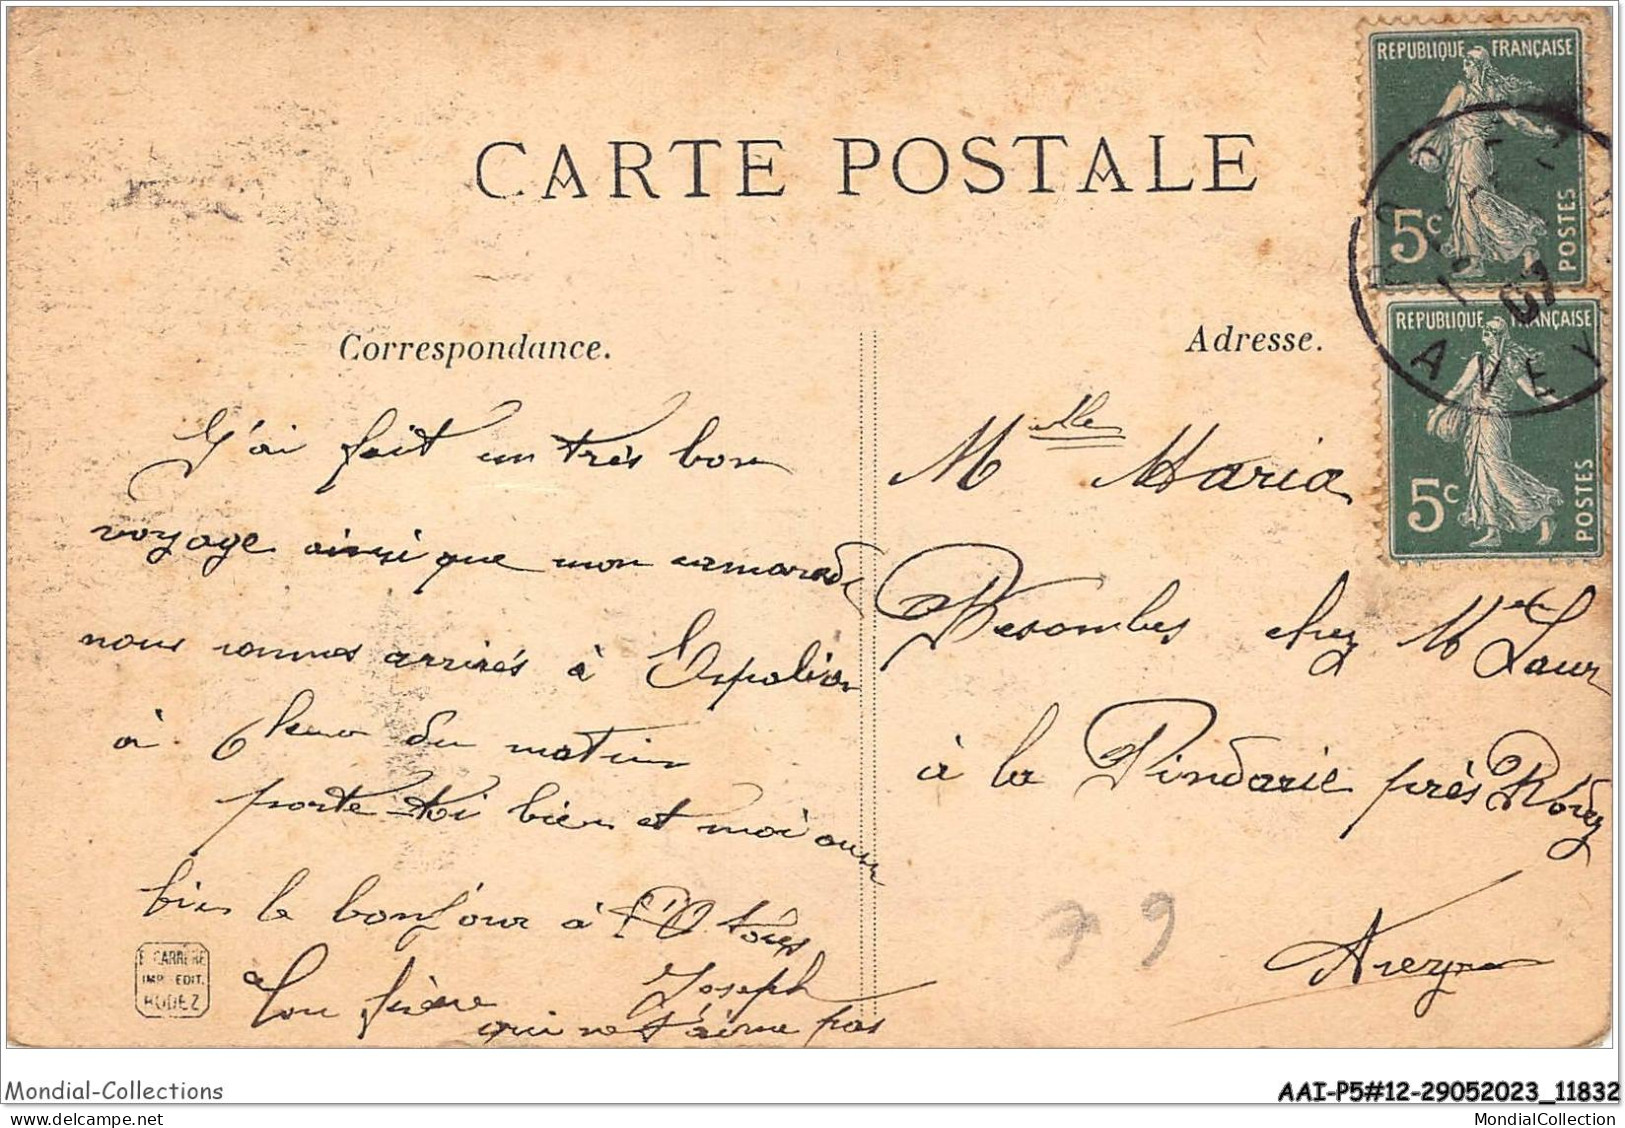 CARTE POSTALE
REPUBLIQUE FRANÇAISE
5c
POSTES
REPUBLIQUE FRANÇAISE
5c
POSTES
07
AVEY
Correspondance.
J'ai fait un très bon
voyage ainsi que mon camarade
nous sommes arrivés à Espalion
à 6 heure du matin
porte toi bien et moi aussi
bien le bonjour à tous
Ton frère Joseph
qui ne t'aime pas
E. CARRÈRE
IMP. EDIT.
RODEZ
Adresse.
Mlle Maria
Besombes chez M Laur
à la Pindarie près Rodez
Aveyron
79
Mondial-Collections
AAI-P5#12-29052023_11832
MondialCollection